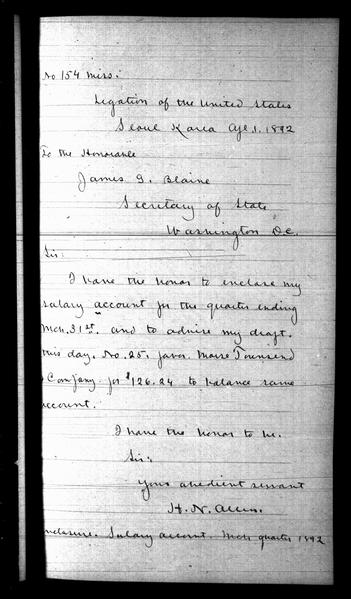 No 154 Miss.
Legation of the United States
Seoul Korea Apl. 1. 1892
To the Honorable
James G. Blaine
Secretary of State
Washington D.C.
Sir:
I have the honor to enclose my
salary account for the quarter ending
Mch. 31st. and to advise my draft.
this day. No. 25. favor. Morse Townsend
Company. for $126.24 to balance same
account.
I have the honor to be.
Sir:
Your obedient servant
H. N. Allen.
nclosure. Salary account. Mch quarter 1892